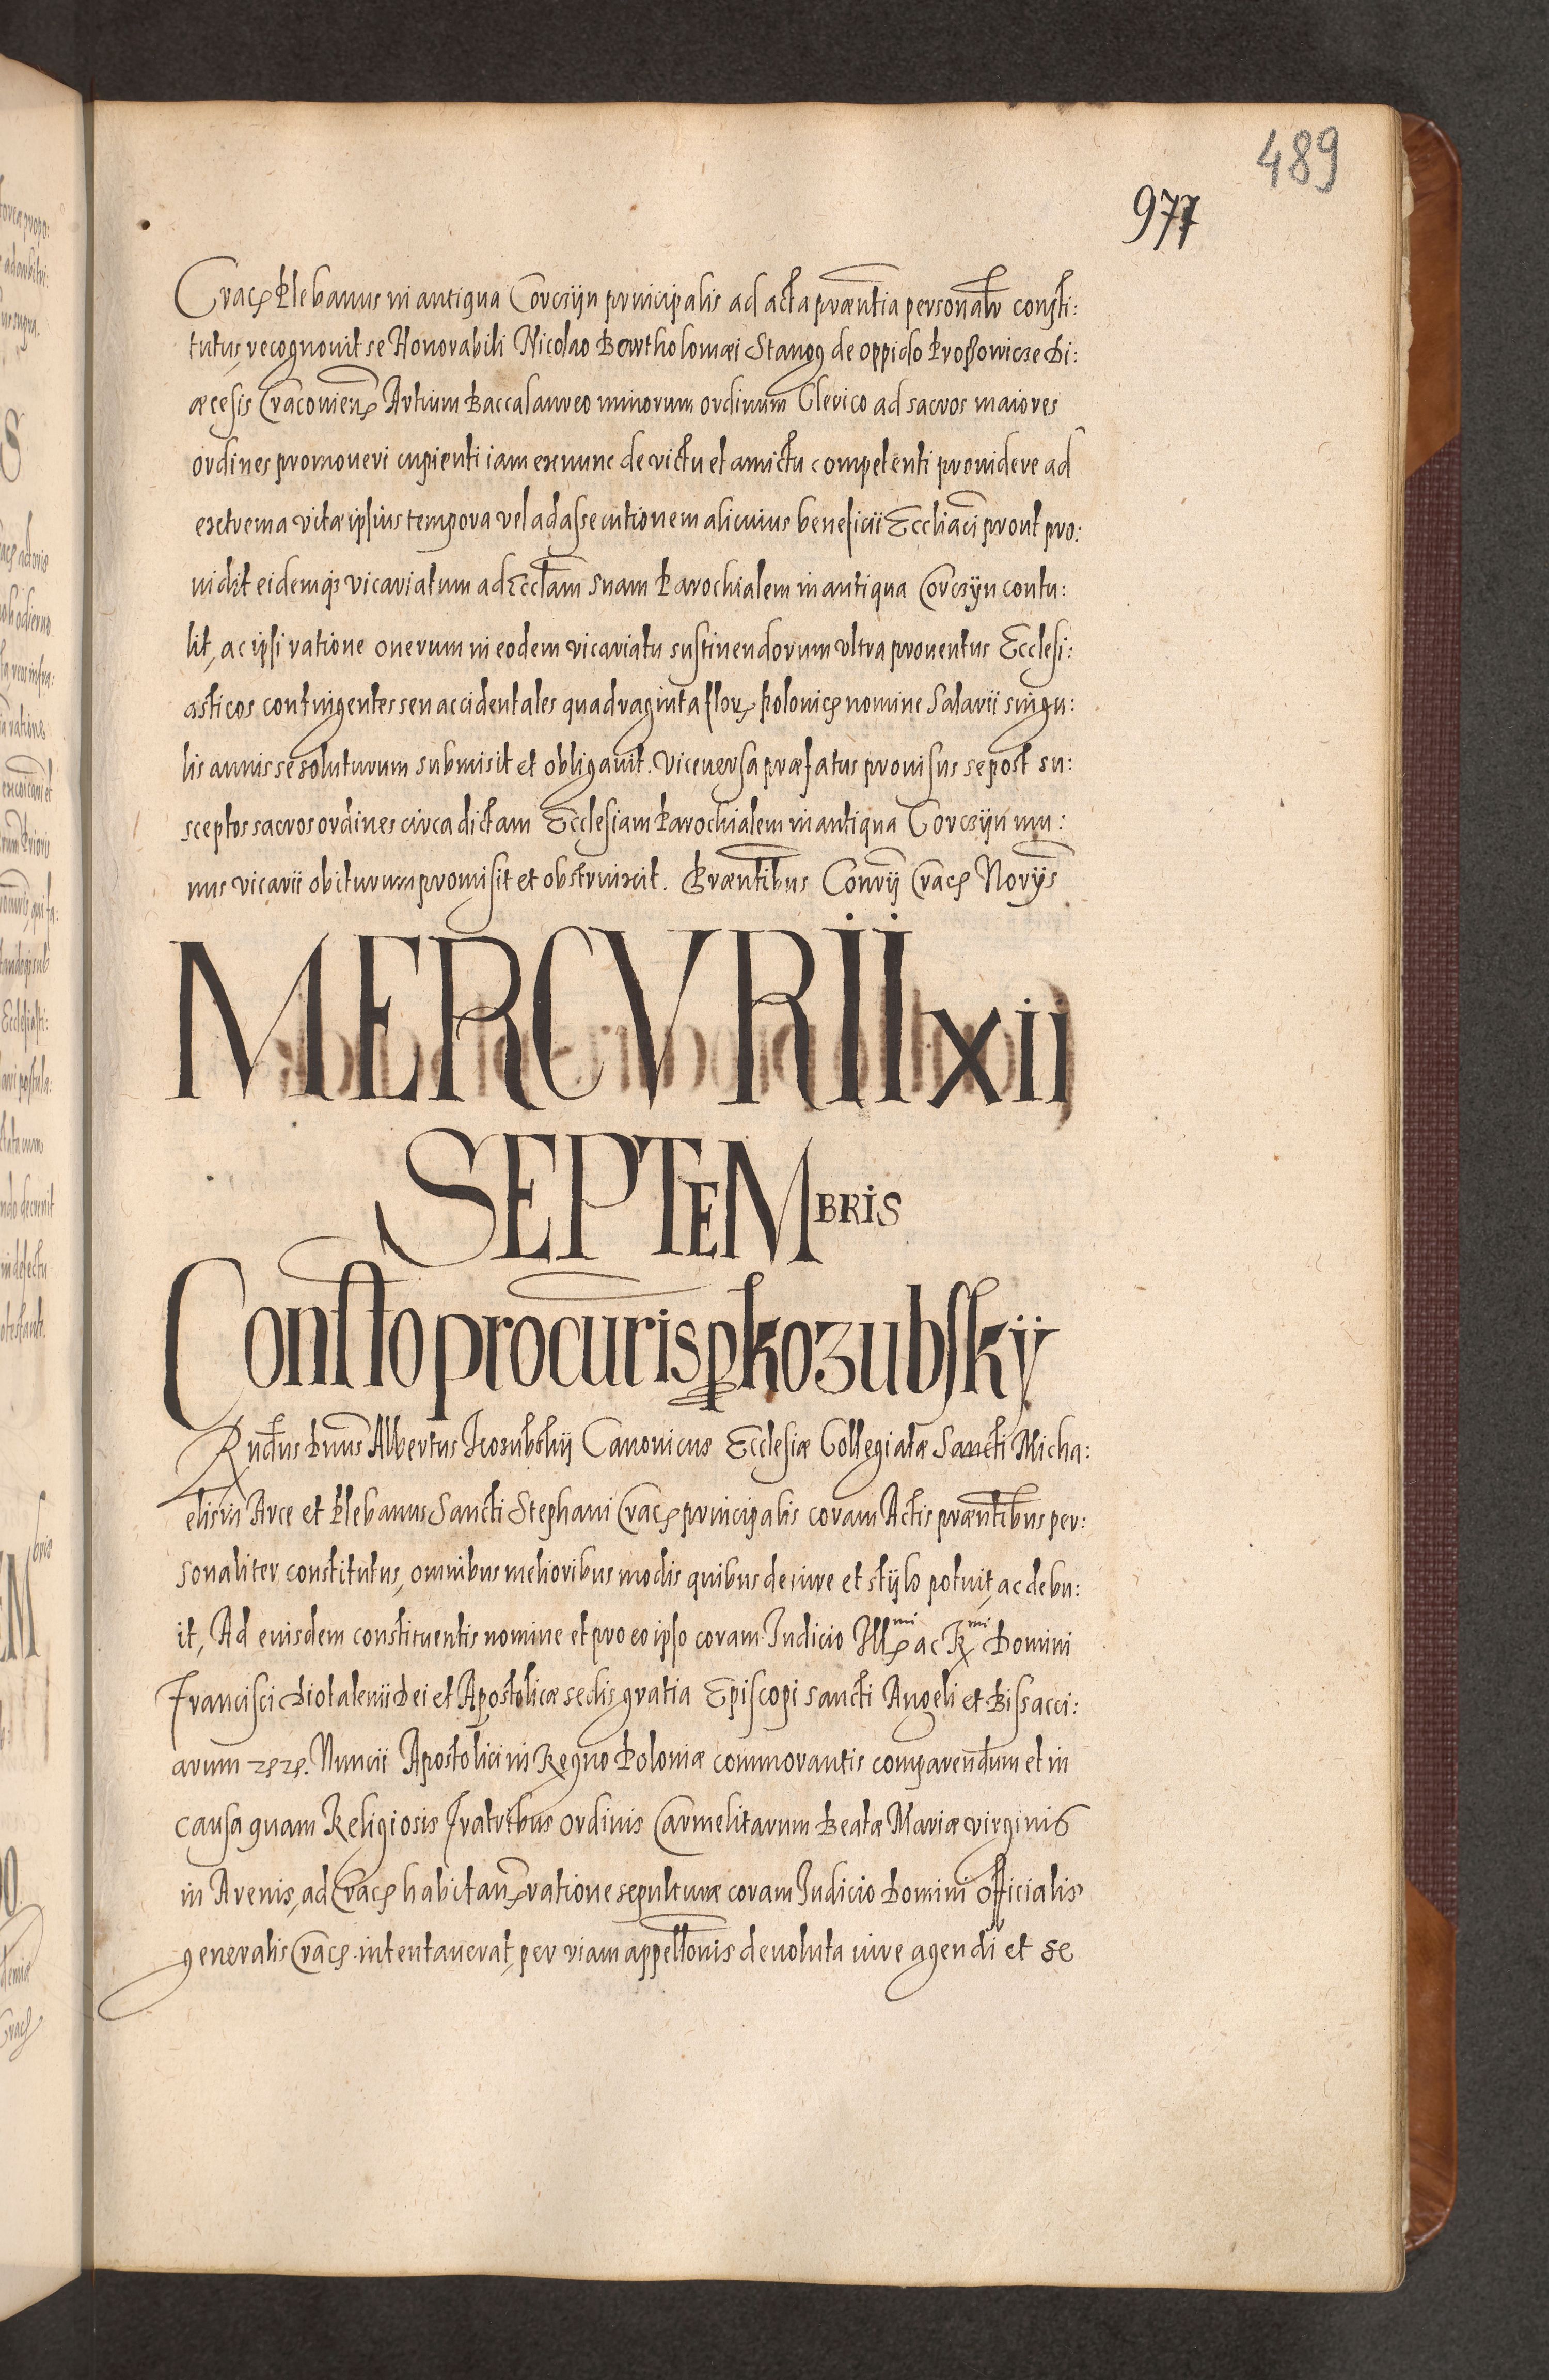 489
977
Crac. Plebanus in antiqua Corczÿn principalis ad acta præntia personalr consti:
tutus, recognouit se Honorabili Nicolao Bartholomæi Stangs de oppido Proßowicze Di:
æcesis Cracovien. Artium Baccalaureo minorum ordinum Clerico ad sacros maiores
ordines promoueri cupienti iam exnunc de victu et amictu competenti prouidere ad
extrema vitæ ipsius tempora vel ad assecutionem alicuius beneficii Eccliaci prout pro:
uidit eidemqз vicariatum ad Ecclam suam Parochialem in antiqua Corczÿn contu:
lit, ac ipsi ratione onerum in eodem vicariatu sustinendorum vltra prouentus Ecclesi:
asticos contingentes seu accidentales quadraginta flor. polonic. nomine Salarii singu:
lis annis se soluturum submisit et obligauit. Viceuersa præfatus prouisus se post su:
sceptos sacros ordines circa dictam Ecclesiam Parochialem in antiqua Corczÿn mu:
nus vicarii obiturum promisit et obstrinxit. Præntibus Conrÿ Crac. Norÿs
MERCVRII xii
SEPTEMBRIS
Constto procuris p kozubskÿ
Rndus Dnus Albertus Kozubskii Canonicus Ecclesiæ Collegiatæ Sancti Micha:
elis in Arce et Plebanus Sancti Stephani Crac. principalis coram Actis præntibus per:
sonaliter constitutus, omnibus melioribus modis quibus de iure et stÿlo potuit, ac debu:
it, Ad euisdem constituentis nomine et pro eo ipso coram Iudicio Ill.mi ac R.mi Domini
Francisci Diotalenii Dei et Apostolicæ sedis gratia Episcopi sancti Angeli et Bissacci:
arum etc. Nuncii Apostolici in Regno Poloniæ commorantis comparendum et in
causa quam Religiosis Fratribus ordinis Carmelitarum Beatæ Mariæ virginis
in Arenis, ad Crac. habitan. ratione sepulturæ coram Iudicio Domini officialis
generalis Crac. intentauerat, per viam appellonis deuoluta iure agendi et se